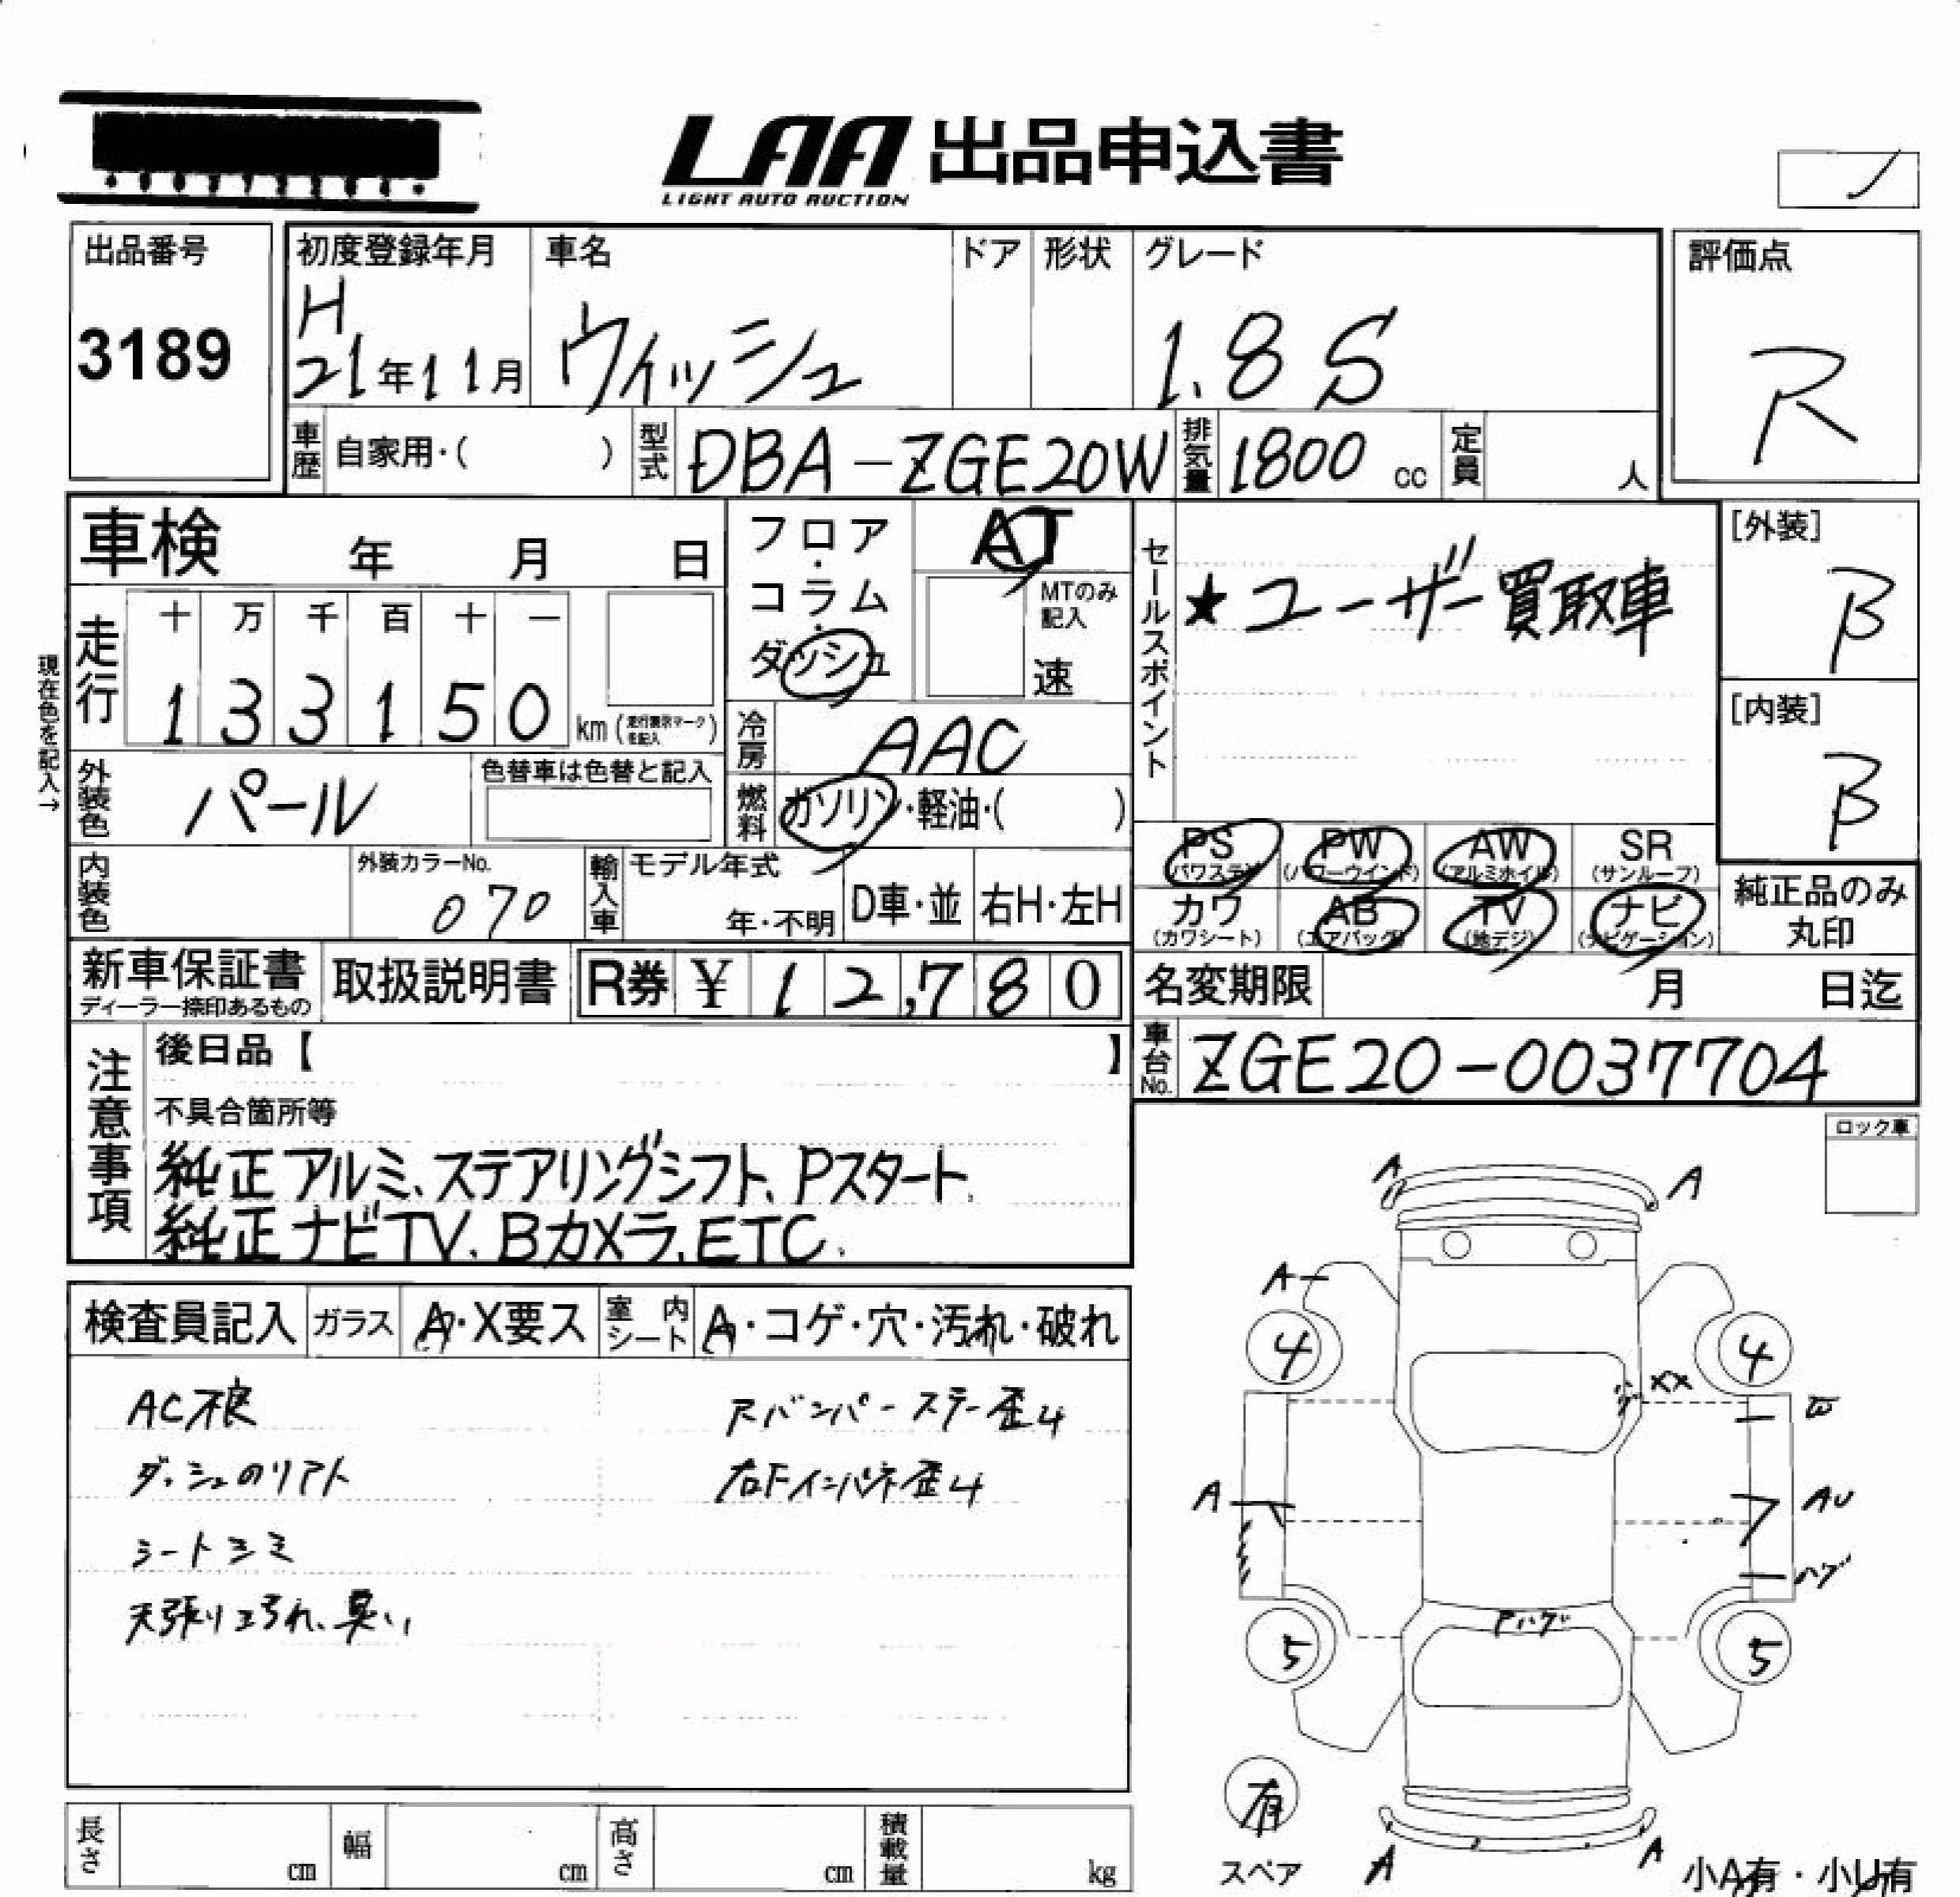 LAA 出品申込書
LIGHT AUTO AUCTION
出品番号
3189
初度登録年月
H
21年11月
車名
ウィッシュ
ドア
形状
グレード
1.8 S
評価点
R
車歴 自家用・( )
型式 DBA-ZGE20W
排気量 1800 cc
定員 人
車検 年 月 日
フロア・コラム・ダッシュ
AT
MTのみ記入
速
セールスポイント
★ユーザー買取車
[外装]
B
[内装]
B
現在色を記入→
走行
十 万 千 百 十 一
1 3 3 1 5 0 km (走行表示マークを記入)
冷房 AAC
外装色 パール
色替車は色替と記入
燃料 ガソリン・軽油・( )
内装色
外装カラーNo.
070
輸入車
モデル年式
年・不明
D車・並
右H・左H
PS (パワステ)
PW (パワーウインド)
AW (アルミホイル)
SR (サンルーフ)
カワ (カワシート)
AB (エアバッグ)
TV (地デジ)
ナビ (ナビゲーション)
純正品のみ丸印
新車保証書
ディーラー捺印あるもの
取扱説明書
R券 ¥ 12,780
名変期限 月 日迄
車台No. ZGE20-0037704
注意事項
後日品【 】
不具合箇所等
純正アルミ、ステアリングシフト、Pスタート、
純正ナビTV、Bカメラ、ETC、
ロック車
検査員記入
ガラス A・X要ス
室内シート A・コゲ・穴・汚れ・破れ
AC不良
ダッシュのリアト
シートシミ
天張り汚れ、臭い
Rバンパーステー歪4
右Fインパネ歪4
A
A
A
4
4
XX
A
AU
ハゲ
5
5
有
スペア
A
A
小A有・小U有
長さ cm
幅 cm
高さ cm
積載量 kg